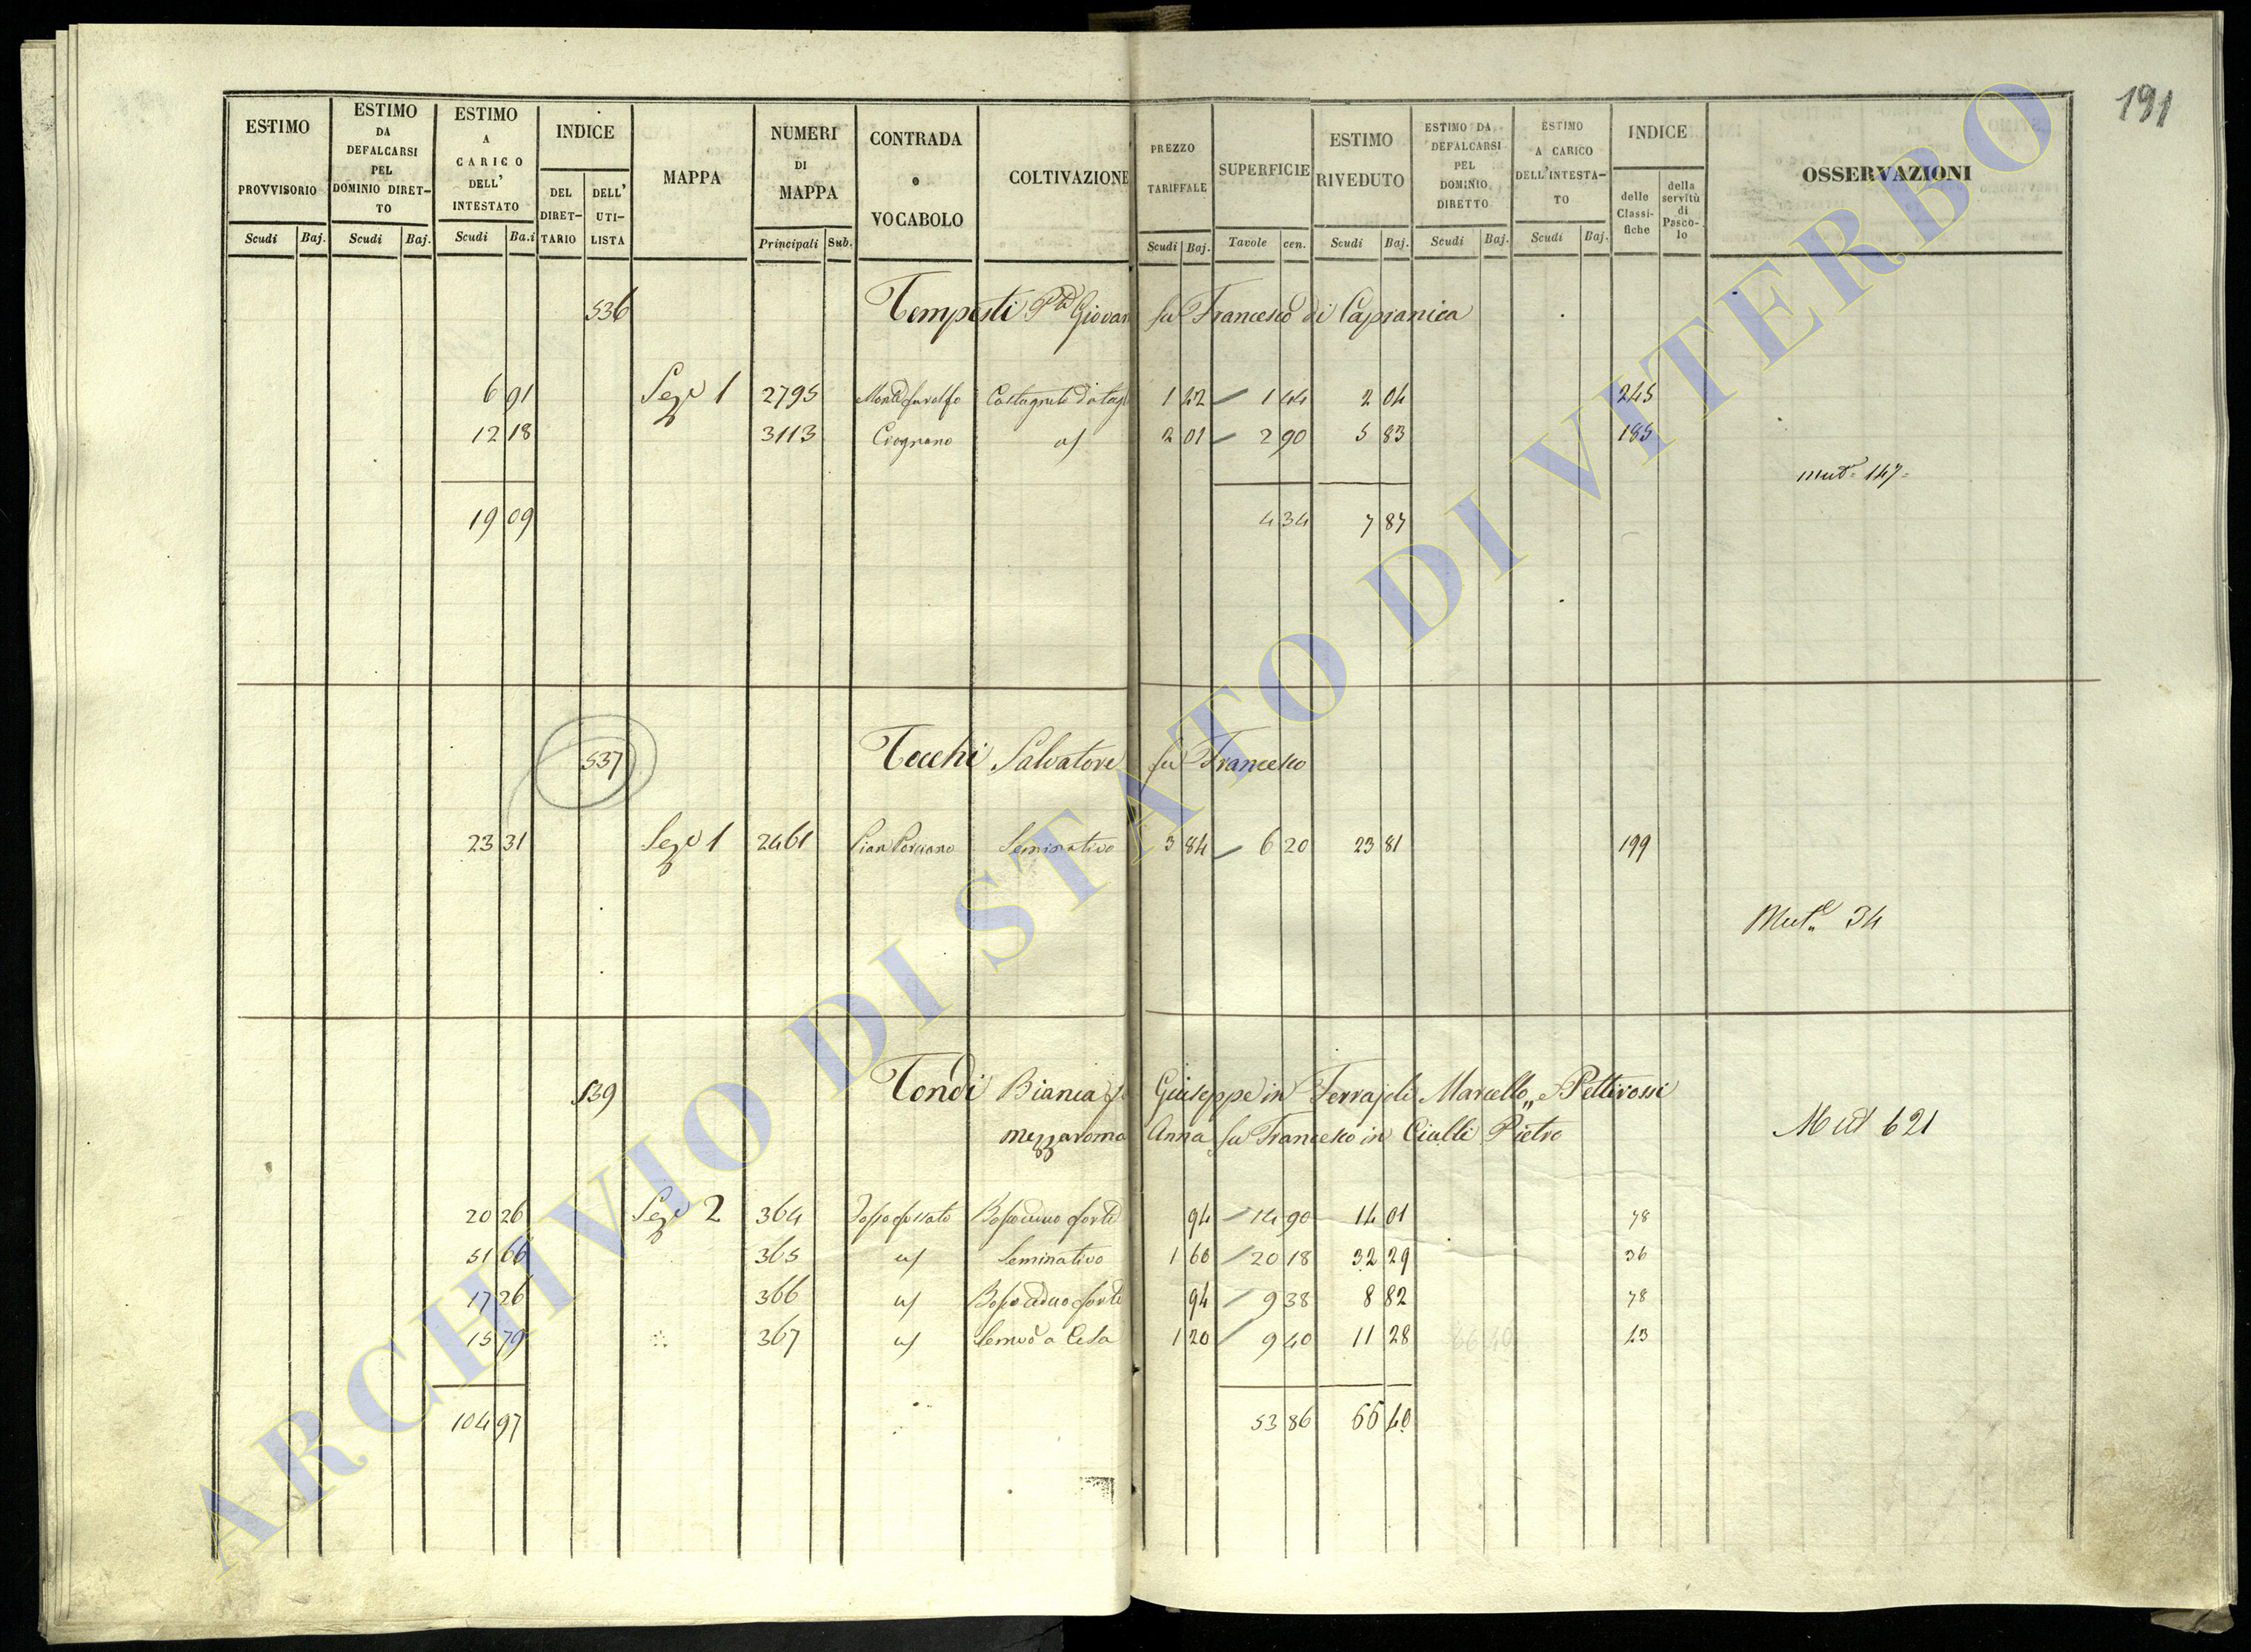 191
ESTIMO PROVVISORIO
ESTIMO DA DEFALCARSI PEL DOMINIO DIRET-TO
ESTIMO A CARICO DELL' INTESTATO
INDICE
DEL DIRET-TARIO
DELL' UTI-LISTA
MAPPA
NUMERI DI MAPPA
CONTRADA o VOCABOLO
COLTIVAZIONE
PREZZO TARIFFALE
SUPERFICIE
ESTIMO RIVEDUTO
ESTIMO DA DEFALCARSI PEL DOMINIO DIRETTO
ESTIMO A CARICO DELL'INTESTA-TO
INDICE
delle Classi-fiche
della servitù di Pasco-lo
OSSERVAZIONI
Scudi Baj. Scudi Baj. Scudi Ba.i Principali Sub. Scudi Baj. Tavole cen. Scudi Baj. Scudi Baj. Scudi Baj.
536 Tempesti Giovan fu Francesco di Capranica
6 91 Sez 1 2795 Castagneto da tagl 1 42 1 44 2 04 245
12 18 3113 2 01 2 90 5 83 185
mut = 147 =
19 09 4 34 7 87
537 Tecchi Salvatore fu Francesco
23 31 Sez 1 2461 Pian Porciano Seminativo 3 84 6 20 23 81 199
Mut 34
539 Tondi Bianca fu Giuseppe in Ferrajoli Marcello,, e Pettirossi
Mezzaroma Anna fu Francesco in Ciulli Pietro
Mut 621
20 26 Sez 2 364 Bosco ceduo forte 94 14 90 14 01 78
51 66 365 Seminativo 1 60 20 18 32 29 36
17 26 366 Bosco ceduo forte 94 9 38 8 82 78
15 79 367 a Cesa 1 20 9 40 11 28 43
66 40
104 97 53 86 66 40
ARCHIVIO DI STATO DI VITERBO